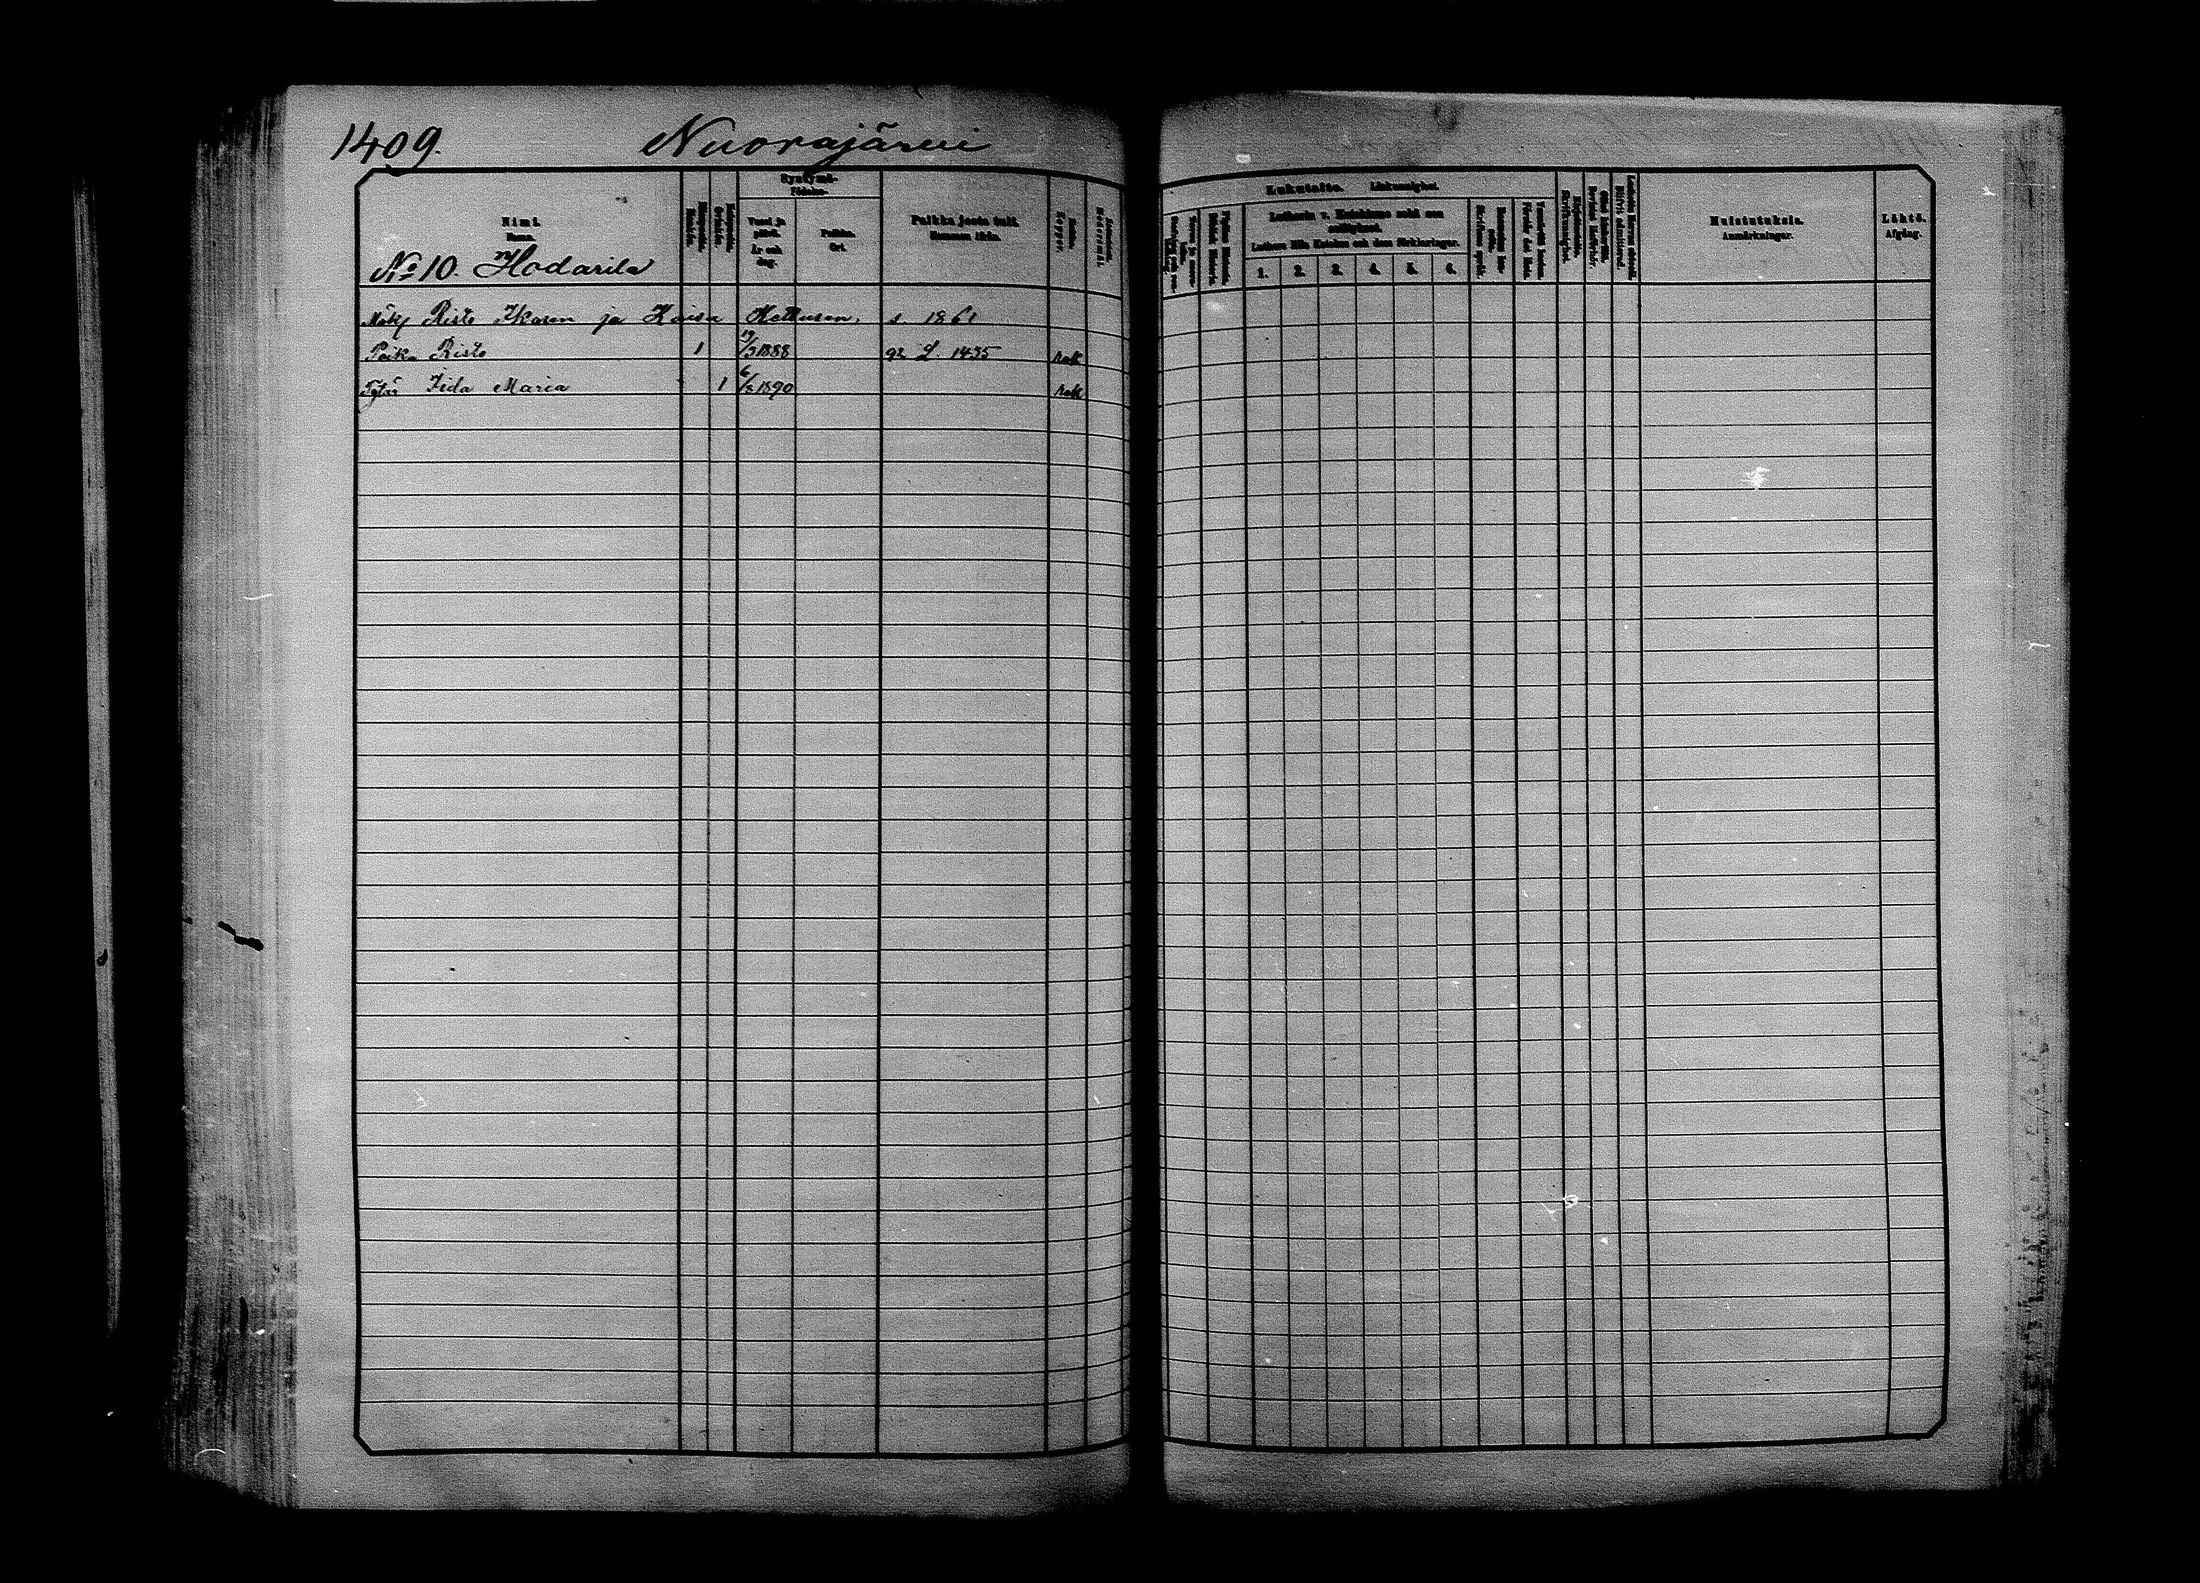 1409. Nuorajärvi
Nimi.
Namn.
No 10. Hodarila
Syntymä-
Födelse-
Vuosi ja
päivä.
År och
dag.
Paikka.
Ort.
Paikka josta tuli.
Hemman ifrån.
Rokko.
Koppor.
Lukutaito. Läskunnighet.
Lutherin v. Katekismo sekä sen
selitykset.
Luthers lilla Kateches och dess förklaringar.
1. 2. 3. 4. 5. 6.
Muistutuksia.
Anmärkningar.
Lähtö.
Afgång.
Mäk. Risto Ikosen ja Kaisa Kettusen, s. 1861
Poika Risto 1 19/3 1888 92 L. 1435 Rok
Tytär Iida Maria 1 6/8 1890 Rok